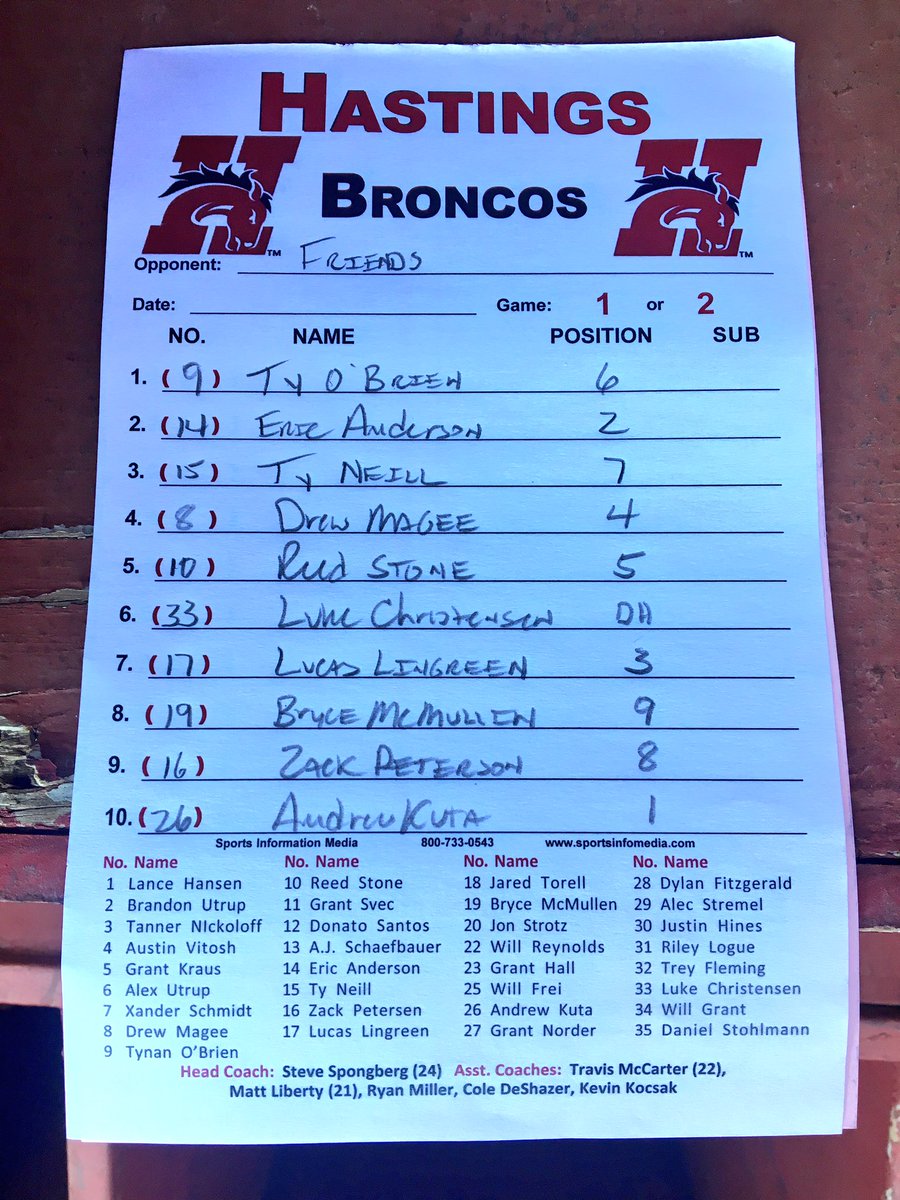 HASTINGS
BRONCOS
H TM H TM
Opponent: FRIENDS
Date: Game: 1 or 2
NO. NAME POSITION SUB
1. (9) Ty O'BRIEN 6
2. (14) ERIC Anderson 2
3. (15) Ty NEILL 7
4. (8) Drew MAGEE 4
5. (10) Reed STONE 5
6. (33) Luke Christensen DH
7. (17) LUCAS LINGREEN 3
8. (19) Bryce McMULLEN 9
9. (16) ZACK PETERSON 8
10. (26) Andrew KUTA 1
Sports Information Media 800-733-0543 www.sportsinfomedia.com
No. Name No. Name No. Name No. Name
1 Lance Hansen 10 Reed Stone 18 Jared Torell 28 Dylan Fitzgerald
2 Brandon Utrup 11 Grant Svec 19 Bryce McMullen 29 Alec Stremel
3 Tanner NIckoloff 12 Donato Santos 20 Jon Strotz 30 Justin Hines
4 Austin Vitosh 13 A.J. Schaefbauer 22 Will Reynolds 31 Riley Logue
5 Grant Kraus 14 Eric Anderson 23 Grant Hall 32 Trey Fleming
6 Alex Utrup 15 Ty Neill 25 Will Frei 33 Luke Christensen
7 Xander Schmidt 16 Zack Petersen 26 Andrew Kuta 34 Will Grant
8 Drew Magee 17 Lucas Lingreen 27 Grant Norder 35 Daniel Stohlmann
9 Tynan O'Brien
Head Coach: Steve Spongberg (24) Asst. Coaches: Travis McCarter (22),
Matt Liberty (21), Ryan Miller, Cole DeShazer, Kevin Kocsak